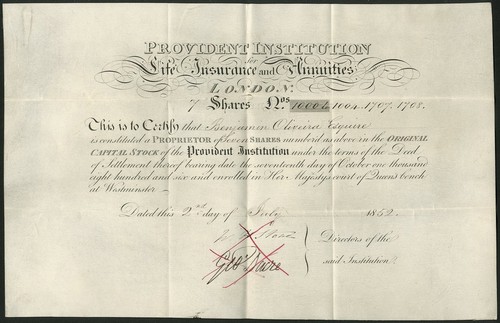 PROVIDENT INSTITUTION
for
Life Insurance and Annuities
LONDON.
7 Shares Nos 1000 to 1004. 1707. 1708.
This is to Certify that Benjamin Oliveira Esquire
is constituted a PROPRIETOR of Seven SHARES number'd as above in the ORIGINAL
CAPITAL STOCK of the Provident Institution under the terms of the Deed
of Settlement thereof bearing date the seventeenth day of October one thousand
eight hundred and six and enrolled in Her Majestys court of Queens bench
at Westminster.
Dated this 2nd day of July 1852.
Directors of the
said Institution.